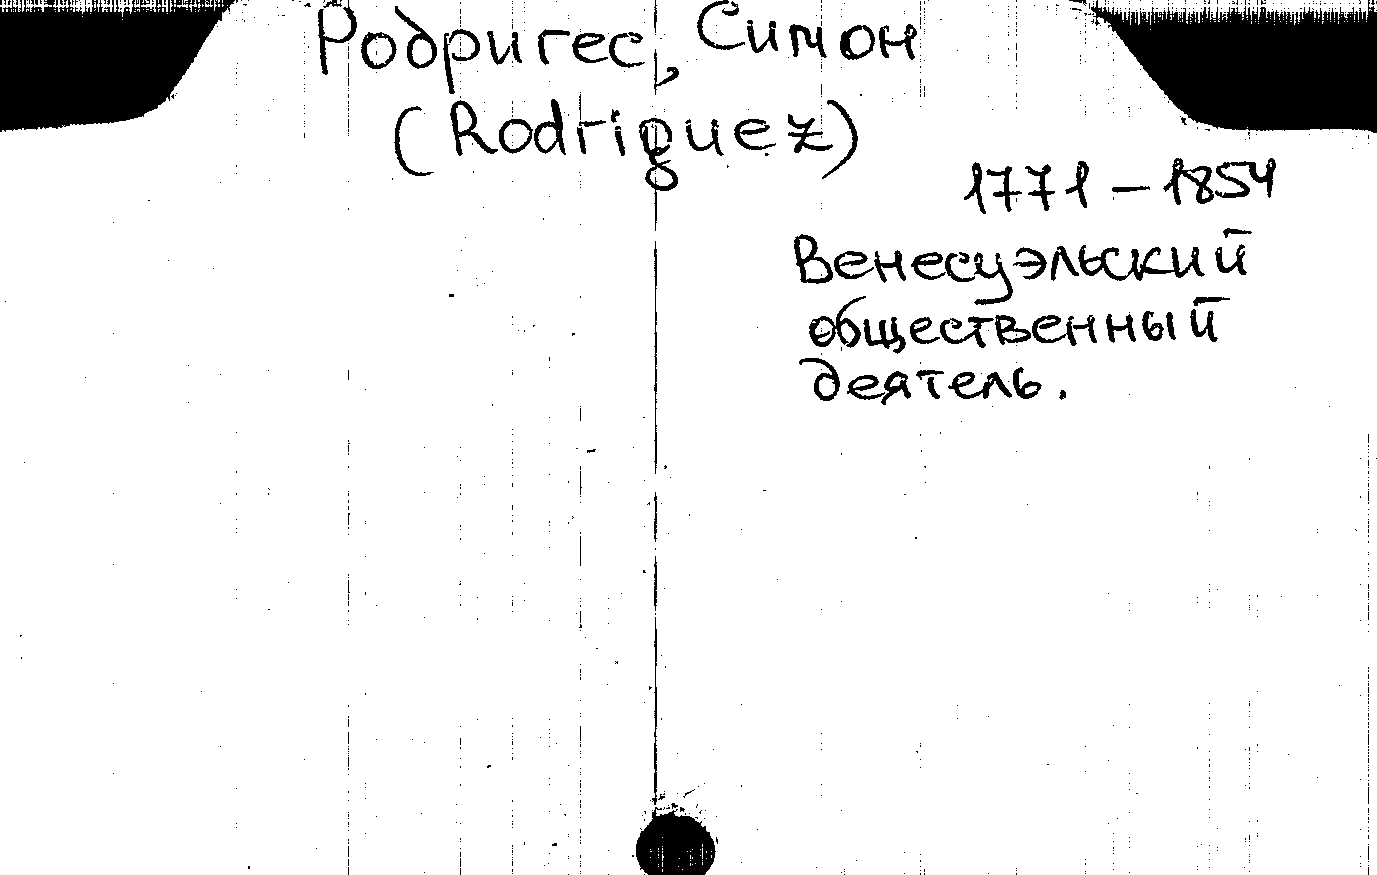 Родригес, Симон
(Rodriguez)
1771 – 1854
Венесуэльский
общественный
деятель.